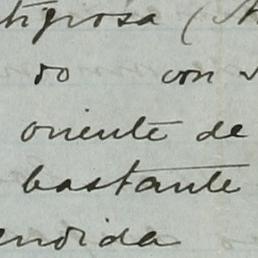 tigrosa (M
do con s
oriente de
bastante
endida